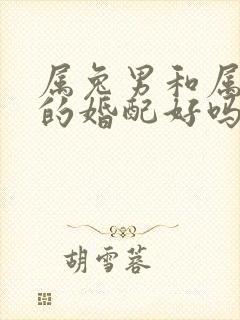 属兔男和属
的婚配好吗
胡雪蓉